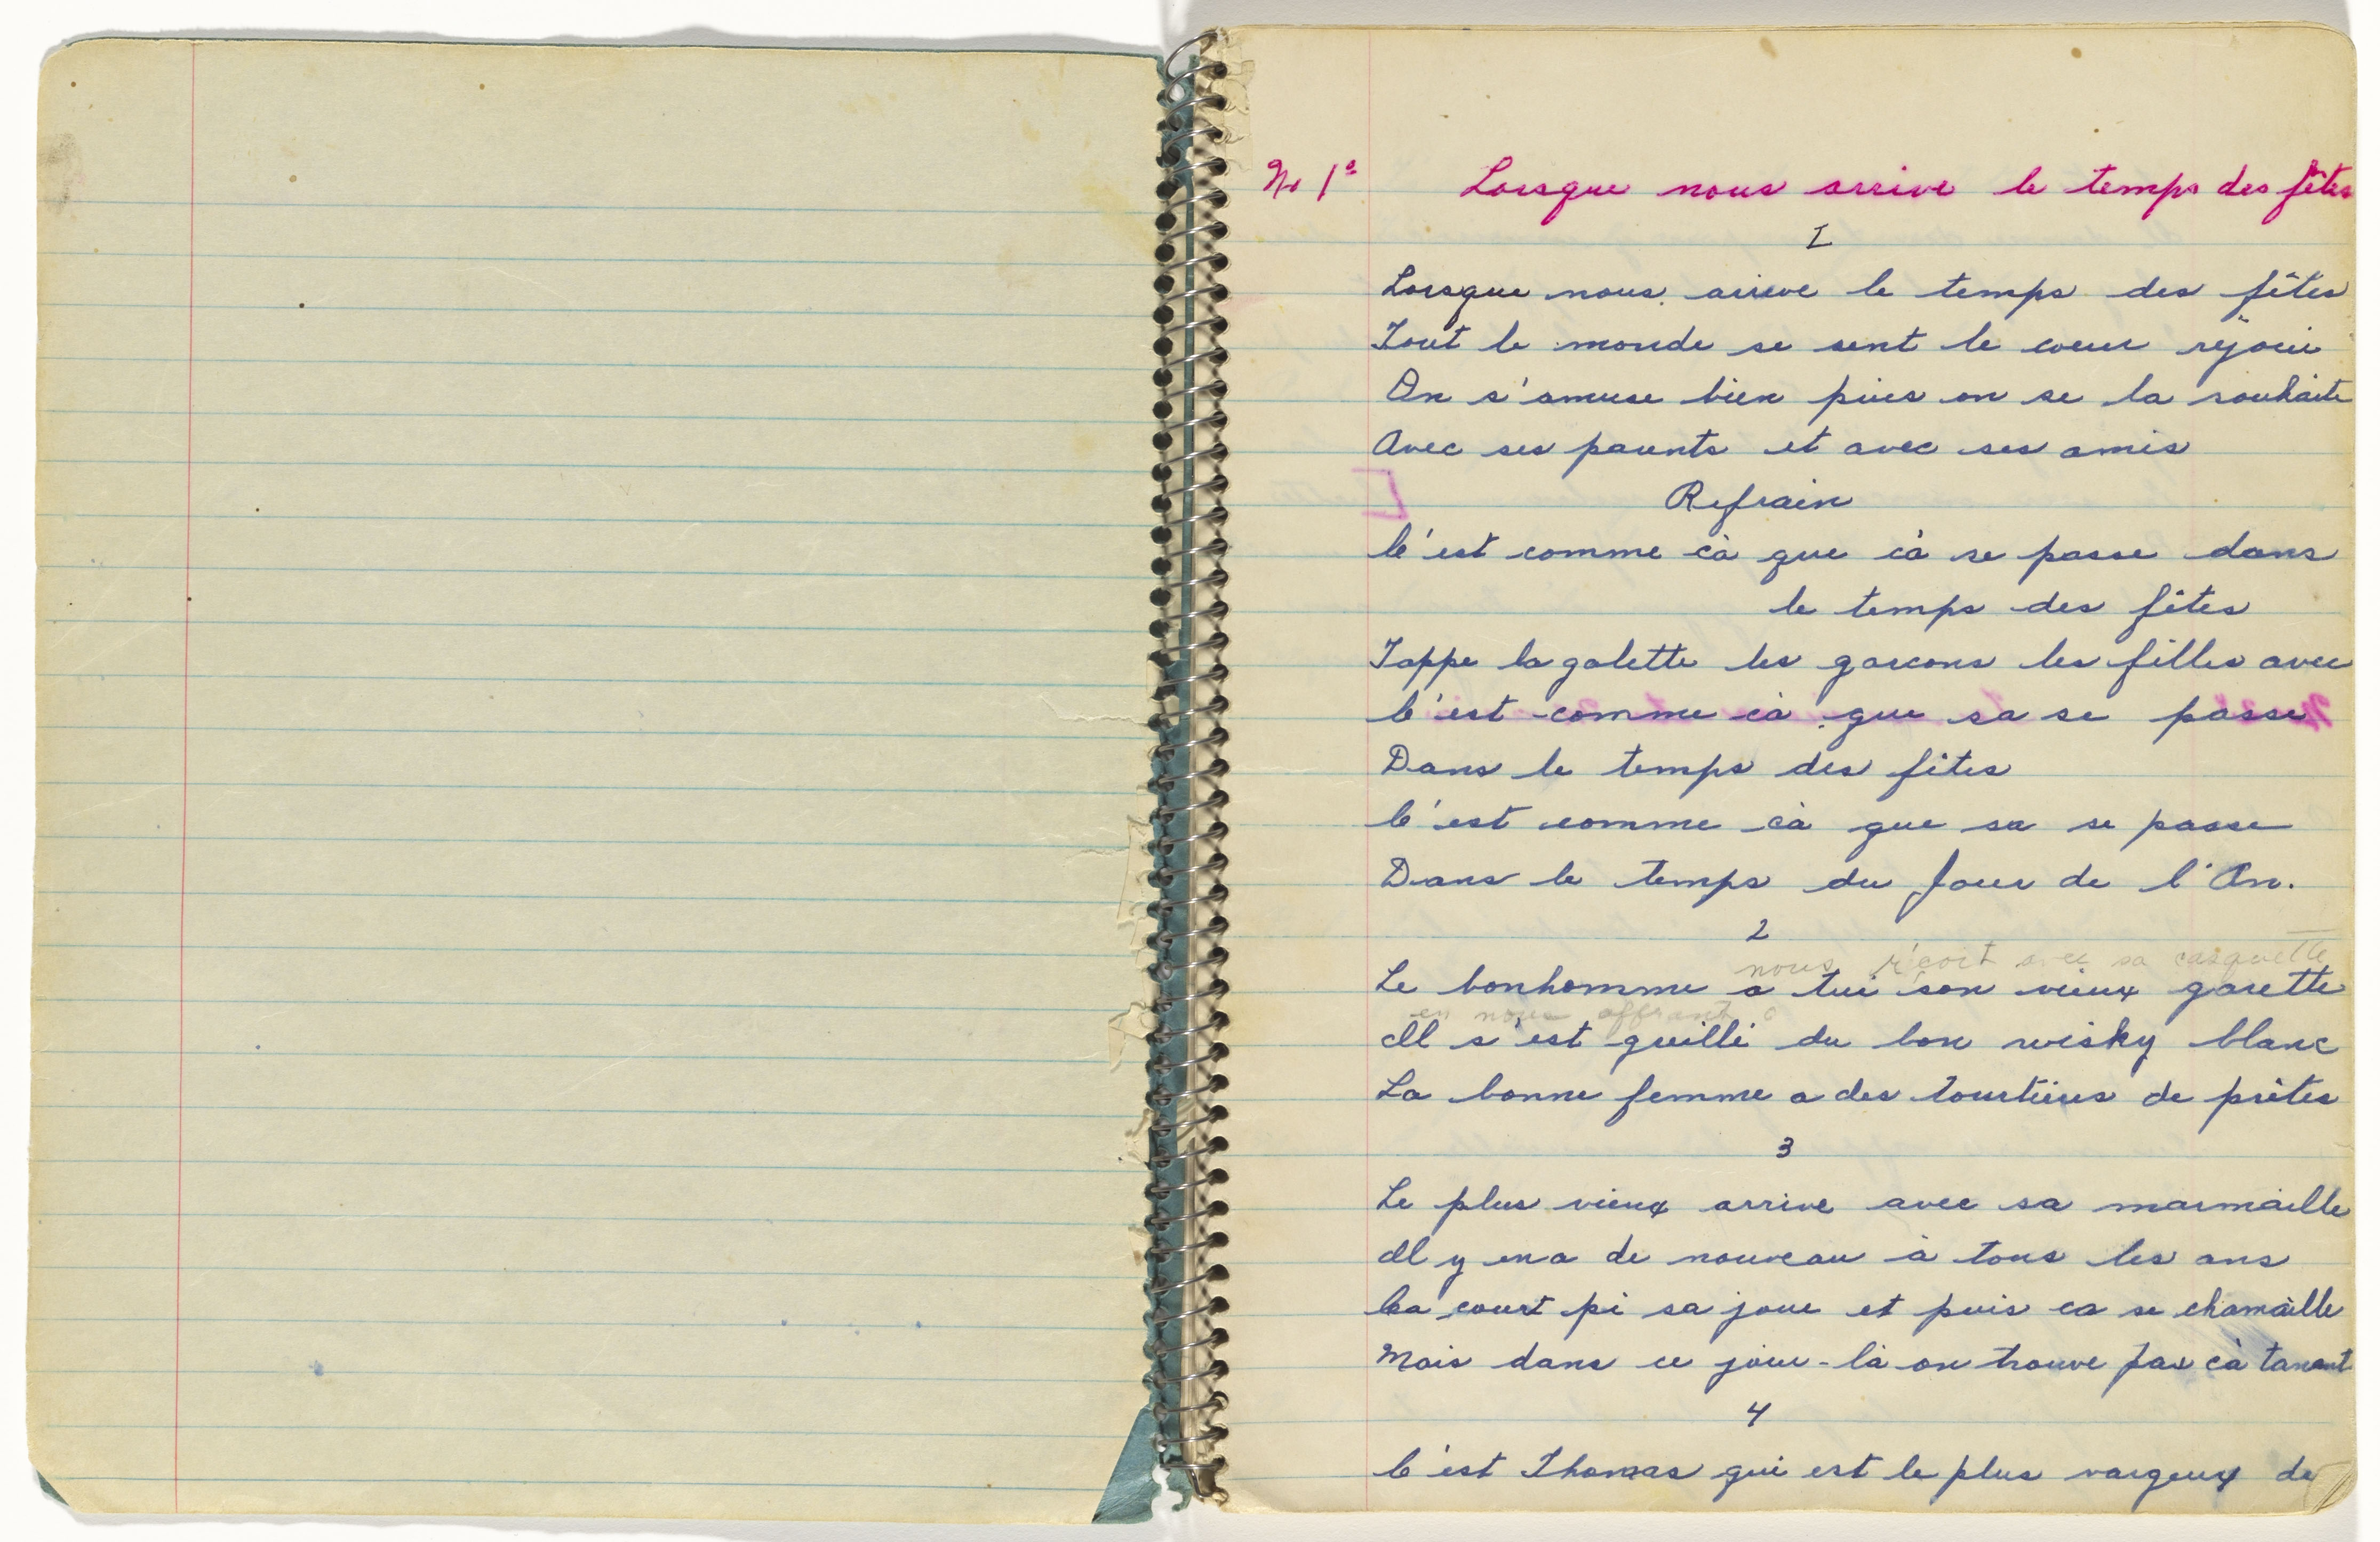 No 1º Lorsque nous arrive le temps des fêtes
I
Lorsque nous arrive le temps des fêtes
Tout le monde se sent le coeur réjoui
On s'amuse bien puis on se la souhaite
Avec ses parents et avec ses amis
Refrain
C'est comme cà que cà se passe dans
le temps des fêtes
Tappe la galette les garcons les filles avec
C'est comme cà que sa se passe
Dans le temps des fêtes
C'est comme cà que sa se passe
Dans le temps du Jour de l'An.
2
nous r'çoit avec sa casquette
Le bonhomme a tui son vieux garette
en nous offrant
Il s'est greillé du bon wisky blanc
La bonne femme a des tourtières de prêtes
3
Le plus vieux arrive avec sa marmaille
Il y en a de nouveau à tous les ans
Ca court pi sa joue et puis ca se chamaille
Mais dans ce jour-là on trouve pas cà tanant
4
C'est Thomas qui est le plus vargeux de